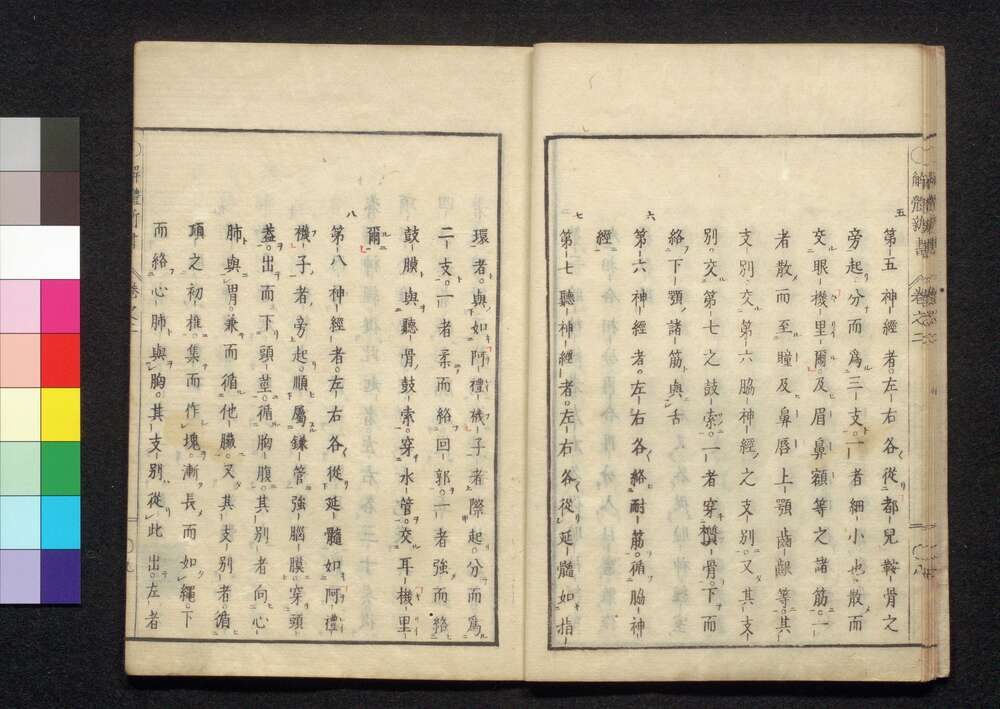 解體新書 卷之二
五
第五神經者。左右各從都兒鞍骨之
旁起。分而爲三支。一者細小也。散而
交眼機里爾。及眉鼻額等之諸筋。一
者散而至瞳及鼻唇上顎齒齦等。其
支別交第六脇神經之支別。又其支
別。交第七之鼓索。一者穿 骨。下而
絡下顎諸筋與舌
六
第六神經者。左右各絡耐筋。循脇神
經
七
第七聽神經者。左右各從延髓如指
環者。與如阿禮機子者際起。分而爲
二支。一者柔而絡回郭。一者強而絡
鼓膜與聽骨鼓索。穿水管。交耳機里
爾
八
第八神經者。左右各從延髓如阿禮
機子者旁起。順屬鎌管強腦膜。穿頭
盖。出而下頭莖。循胸腹。其別者向心
肺與胃。兼而循他臟。又其支別者。循
項之初椎。集而作塊。漸長而如繩。下
而絡心肺與胸。其支別從此出。左者
解體新書 卷之二